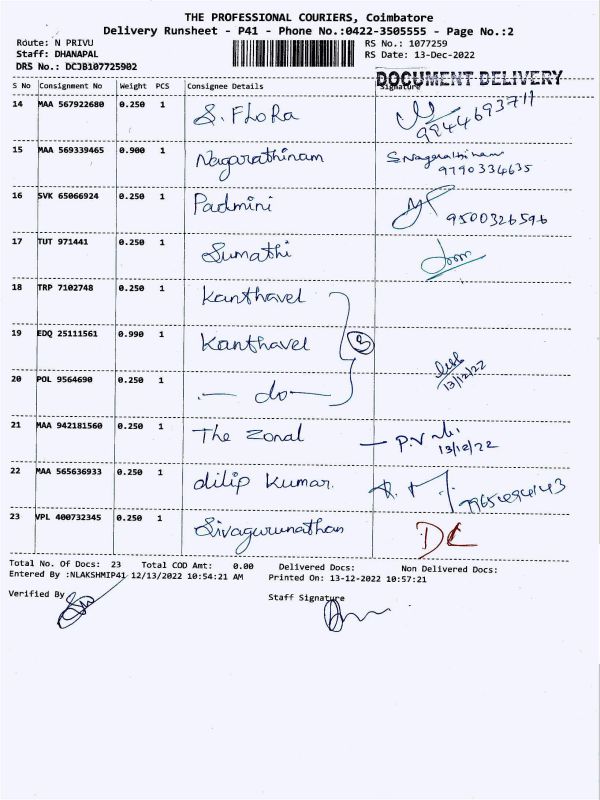 THE PROFESSIONAL COURIERS, Coimbatore
Delivery Runsheet - P41 - Phone No.:0422-3505555 - Page No.:2
Route: N PRIVU RS No.: 1077259
Staff: DHANAPAL RS Date: 13-Dec-2022
DRS No.: DCJB107725902 DOCUMENT DELIVERY
S No Consignment No Weight PCS Consignee Details Signature
14 MAA 567922680 0.250 1 S. FLoRa 9944693711
15 MAA 569339465 0.900 1 Nagarathinam S. Nagarathinam
9790334635
16 SVK 65066924 0.250 1 Padmini 9500326596
17 TUT 971441 0.250 1 Sumathi
18 TRP 7102748 0.250 1 Kanthavel
19 EDQ 25111561 0.990 1 Kanthavel 3
13/12/22
20 POL 9564690 0.250 1 — do —
21 MAA 942181560 0.250 1 The Zonal — P.V
13/12/22
22 MAA 565636933 0.250 1 dilip Kumar.
23 VPL 400732345 0.250 1 Sivagurunathan DC
Total No. Of Docs: 23 Total COD Amt: 0.00 Delivered Docs: Non Delivered Docs:
Entered By :NLAKSHMIP41 12/13/2022 10:54:21 AM Printed On: 13-12-2022 10:57:21
Verified By Staff Signature